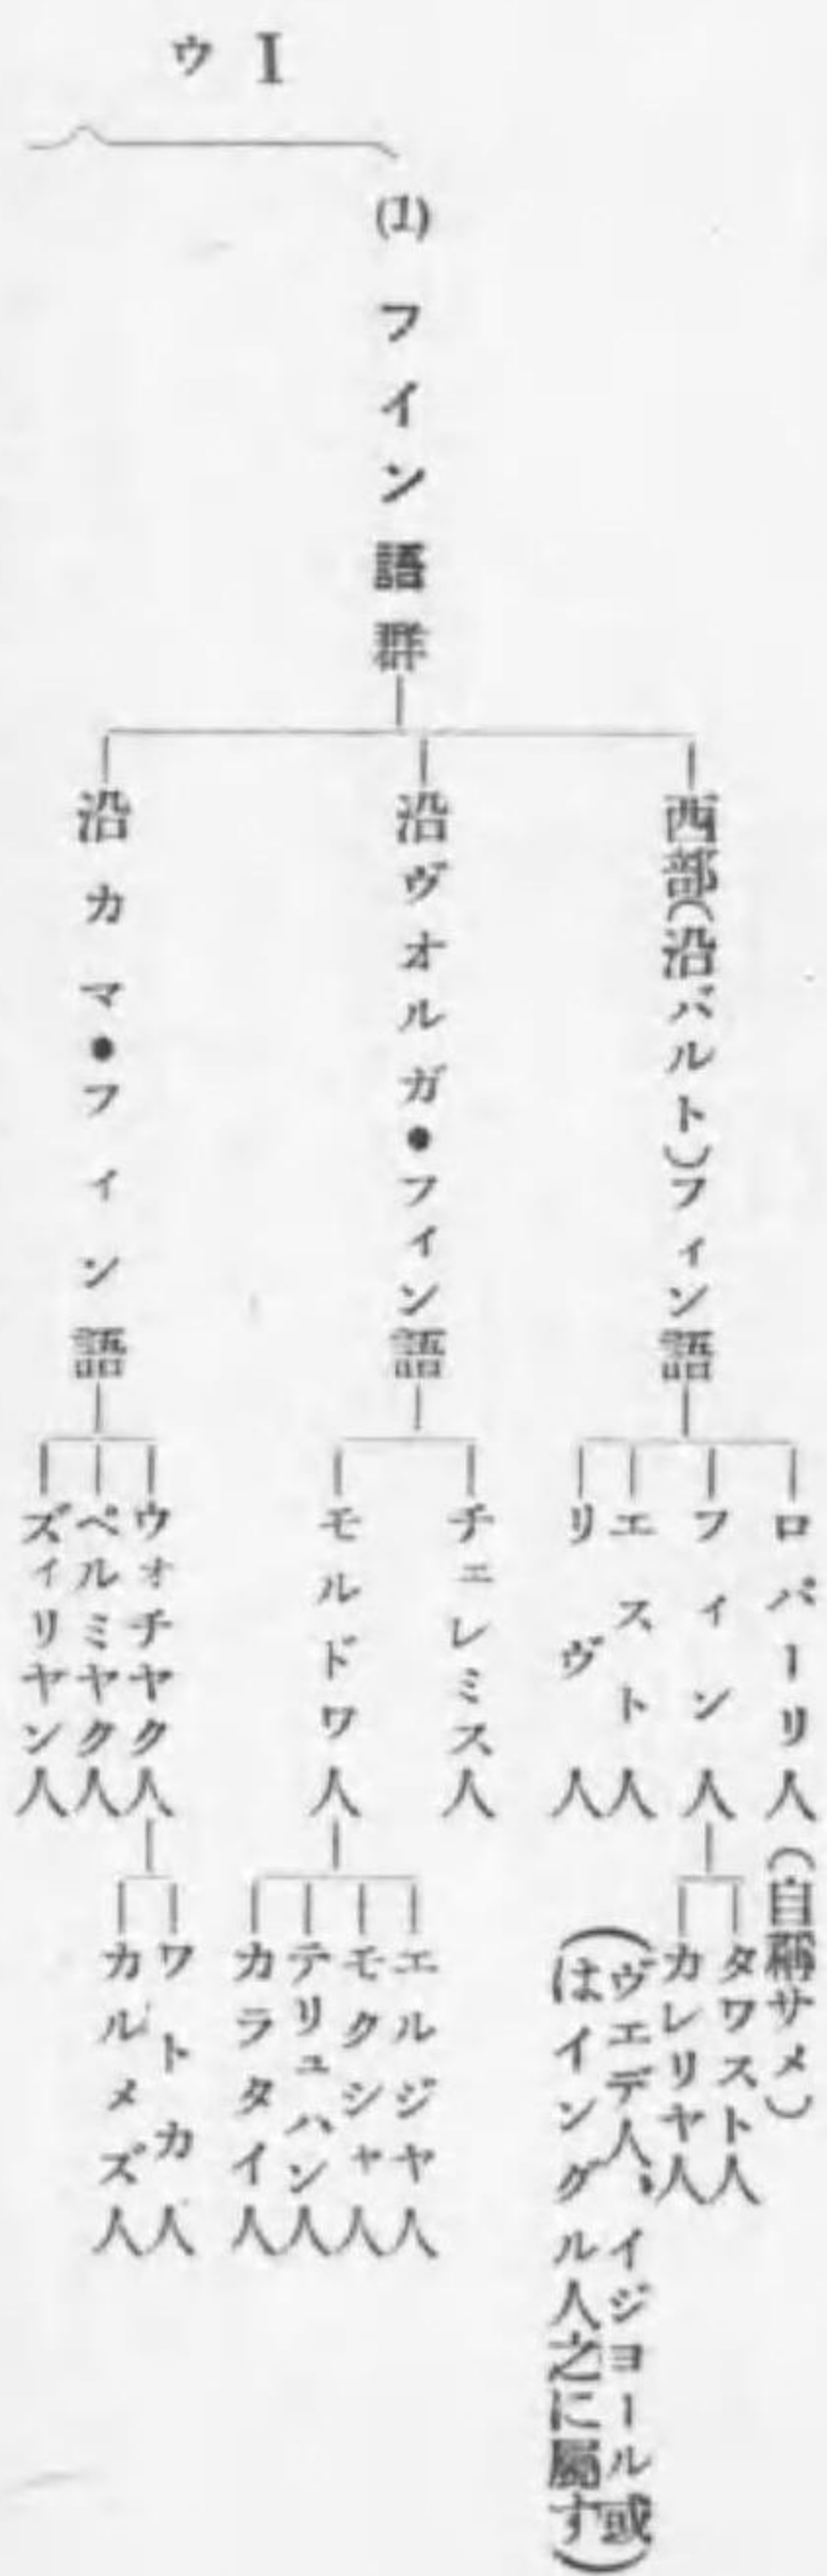 I
ウ
(1) フイン語群
西部(沿バルト)フィン語
ロパーリ人(自稱サメ)
フィン人
タワスト人
カレリヤ人
エスト人
リヴ人
(ヴエデ人、イジヨール或
はイングル人之に屬す)
沿ヴオルガ●フィン語
チェレミス人
モルドワ人
エルジヤ人
モクシャ人
テリュハン人
カラタイ人
沿カマ●フィン語
ウォチヤク人
ワトカ人
カルメズ人
ペルミヤク人
ズィリヤン人